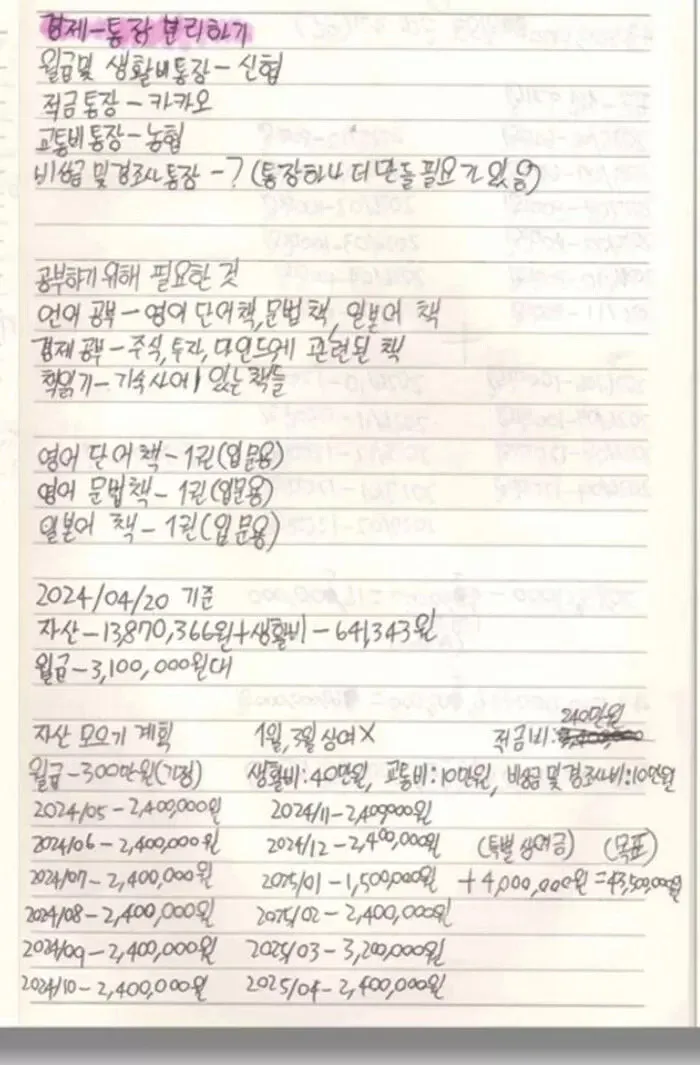 경제-통장 분리하기
월급및 생활비통장 - 신협
적금통장 - 카카오
교통비통장 - 농협
비상금 및 경조사 통장 - ? (통장하나 더 만들 필요가 있음)
공부하기 위해 필요한 것
언어 공부 - 영어 단어책, 문법책, 일본어 책
경제 공부 - 주식, 투자, 마인드에 관련된 책
책읽기 - 기숙사에 있는 책들
영어 단어책 - 1권(입문용)
영어 문법책 - 1권(입문용)
일본어 책 - 1권(입문용)
2024/04/20 기준
자산 - 13,870,366원 + 생활비 - 641,343원
월급 - 3,100,000원대
자산 모으기 계획 1월, 3월 상여X 적금비: 240만원
월급 - 300만원(가정) 생활비: 40만원, 교통비: 10만원, 비상금 및 경조사비: 10만원
2024/05 - 2,400,000원 2024/11 - 2,400000원
2024/06 - 2,400,000원 2024/12 - 2,400,000원 (특별 상여금) (목표)
2024/07 - 2,400,000원 2025/01 - 1,500,000원 + 4,000,000원 = 43,500,000원
2024/08 - 2,400,000원 2025/02 - 2,400,000원
2024/09 - 2,400,000원 2025/03 - 3,200,000원
2024/10 - 2,400,000원 2025/04 - 2,400,000원